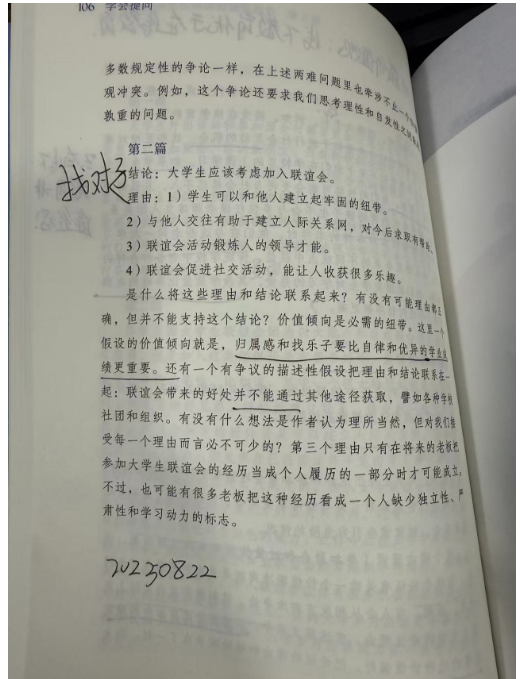 106 学会提问
多数规定性的争论一样，在上述两难问题里也牵涉不止一个
观冲突。例如，这个争论还要求我们思考理性和自发性之
孰重的问题。
第二篇
找对象
结论：大学生应该考虑加入联谊会。
理由：1）学生可以和他人建立起牢固的纽带。
2）与他人交往有助于建立人际关系网，对今后求职有帮助。
3）联谊会活动锻炼人的领导才能。
4）联谊会促进社交活动，能让人收获很多乐趣。
是什么将这些理由和结论联系起来？有没有可能理由都正
确，但并不能支持这个结论？价值倾向是必需的纽带。这里一个
假设的价值倾向就是，归属感和找乐子要比自律和优异的学业成
绩更重要。还有一个有争议的描述性假设把理由和结论联系在一
起：联谊会带来的好处并不能通过其他途径获取，譬如各种学校
社团和组织。有没有什么想法是作者认为理所当然，但对我们接
受每一个理由而言必不可少的？第三个理由只有在将来的老板把
参加大学生联谊会的经历当成个人履历的一部分时才可能成立，
不过，也可能有很多老板把这种经历看成一个人缺少独立性、严
肃性和学习动力的标志。
20250822